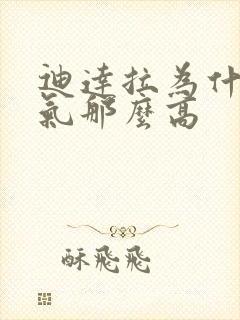 迪達拉為什
氣那麼高
酥飛飛